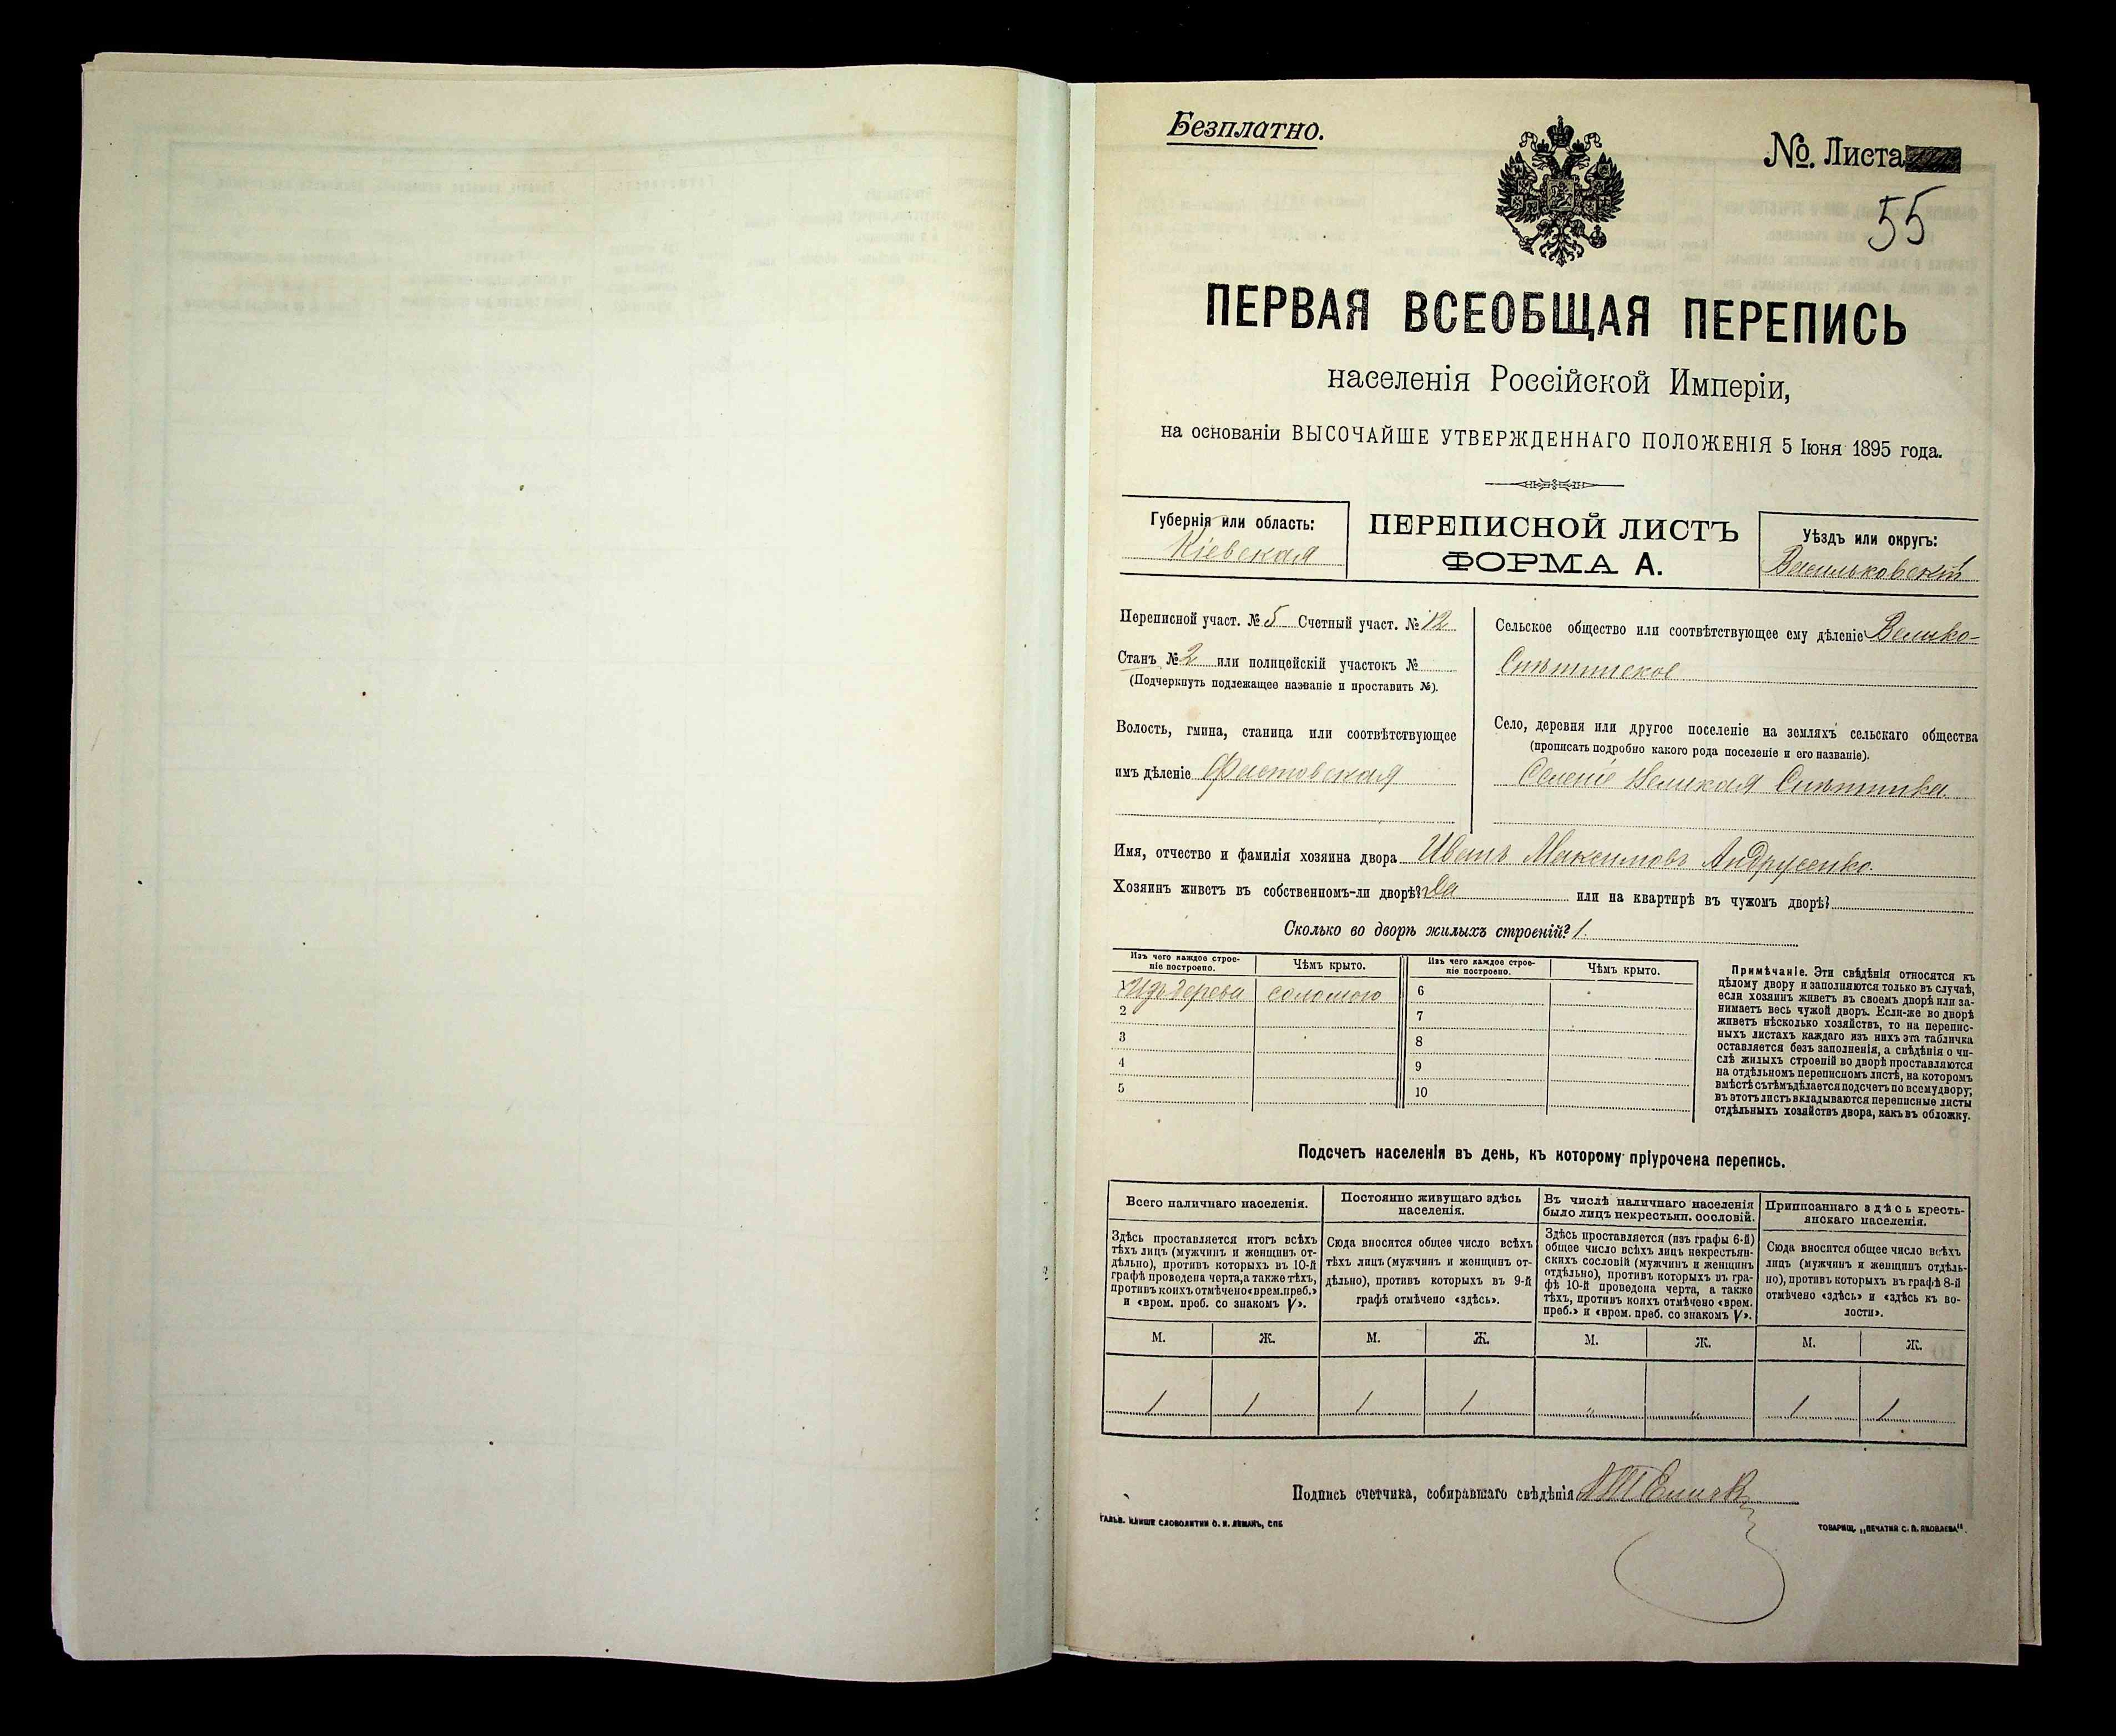 Безплатно.
№. Листа
55
ПЕРВАЯ ВСЕОБЩАЯ ПЕРЕПИСЬ
населенія Россійской Имперіи,
на основаніи ВЫСОЧАЙШЕ УТВЕРЖДЕННАГО ПОЛОЖЕНІЯ 5 Іюня 1895 года.
Губернія или область:
Кіевская
ПЕРЕПИСНОЙ ЛИСТЪ
ФОРМА А.
Уѣздъ или округъ:
Васильковскій
Переписной участ. № 5 Счетный участ. № 12
Станъ № 2 или полицейскій участокъ №
(Подчеркнуть подлежащее названіе и проставить №).
Волость, гмина, станица или соотвѣтствующее
имъ дѣленіе Фастовская
Сельское общество или соотвѣтствующее ему дѣленіе Велико-
Снѣтинское
Село, деревня или другое поселеніе на земляхъ сельскаго общества
(прописать подробно какого рода поселеніе и его названіе).
Селеніе Великая Снѣтинка
Имя, отчество и фамилія хозяина двора Иванъ Максимовъ Андрусенко.
Хозяинъ живетъ въ собственномъ-ли дворѣ? Да или на квартирѣ въ чужомъ дворѣ?
Сколько во дворѣ жилыхъ строеній? 1.
Изъ чего каждое строе-
ніе построено.
Чѣмъ крыто.
Изъ чего каждое строе-
ніе построено.
Чѣмъ крыто.
1 Изъ дерева соломою 6
2 7
3 8
4 9
5 10
Примѣчаніе. Эти свѣдѣнія относятся къ
цѣлому двору и заполняются только въ случаѣ,
если хозяинъ живетъ въ своемъ дворѣ или за-
нимаетъ весь чужой дворъ. Если-же во дворѣ
живетъ нѣсколько хозяйствъ, то на перепис-
ныхъ листахъ каждаго изъ нихъ эта табличка
оставляется безъ заполненія, а свѣдѣнія о чи-
слѣ жилыхъ строеній во дворѣ проставляются
на отдѣльномъ переписномъ листѣ, на которомъ
вмѣстѣ съ тѣмъ дѣлается подсчетъ по всему двору;
въ этотъ листъ вкладываются переписные листы
отдѣльныхъ хозяйствъ двора, какъ въ обложку.
Подсчетъ населенія въ день, къ которому пріурочена перепись.
Всего наличнаго населенія.
Здѣсь проставляется итогъ всѣхъ
тѣхъ лицъ (мужчинъ и женщинъ от-
дѣльно), противъ которыхъ въ 10-й
графѣ проведена черта, а также тѣхъ,
противъ коихъ отмѣчено «врем. преб.»
и «врем. преб. со знакомъ V».
Постоянно живущаго здѣсь
населенія.
Сюда вносится общее число всѣхъ
тѣхъ лицъ (мужчинъ и женщинъ от-
дѣльно), противъ которыхъ въ 9-й
графѣ отмѣчено «здѣсь».
Въ числѣ наличнаго населенія
было лицъ некрестьян. сословій.
Здѣсь проставляется (изъ графы 6-й)
общее число всѣхъ лицъ некрестьян-
скихъ сословій (мужчинъ и женщинъ
отдѣльно), противъ которыхъ въ гра-
фѣ 10-й проведена черта, а также
тѣхъ, противъ коихъ отмѣчено «врем.
преб.» и «врем. преб. со знакомъ V».
Приписаннаго здѣсь кресть-
янскаго населенія.
Сюда вносится общее число всѣхъ
лицъ (мужчинъ и женщинъ отдѣль-
но), противъ которыхъ въ графѣ 8-й
отмѣчено «здѣсь» и «здѣсь къ во-
лости».
М. Ж. М. Ж. М. Ж. М. Ж.
1 1 1 1 " " 1 1
Подпись счетчика, собиравшаго свѣдѣнія
ГАЛЬВ. КЛИШЕ СЛОВОЛИТНИ О. И. ЛЕМАНЪ, СПБ
ТОВАРИЩ. „ПЕЧАТНЯ С. П. ЯКОВЛЕВА“.